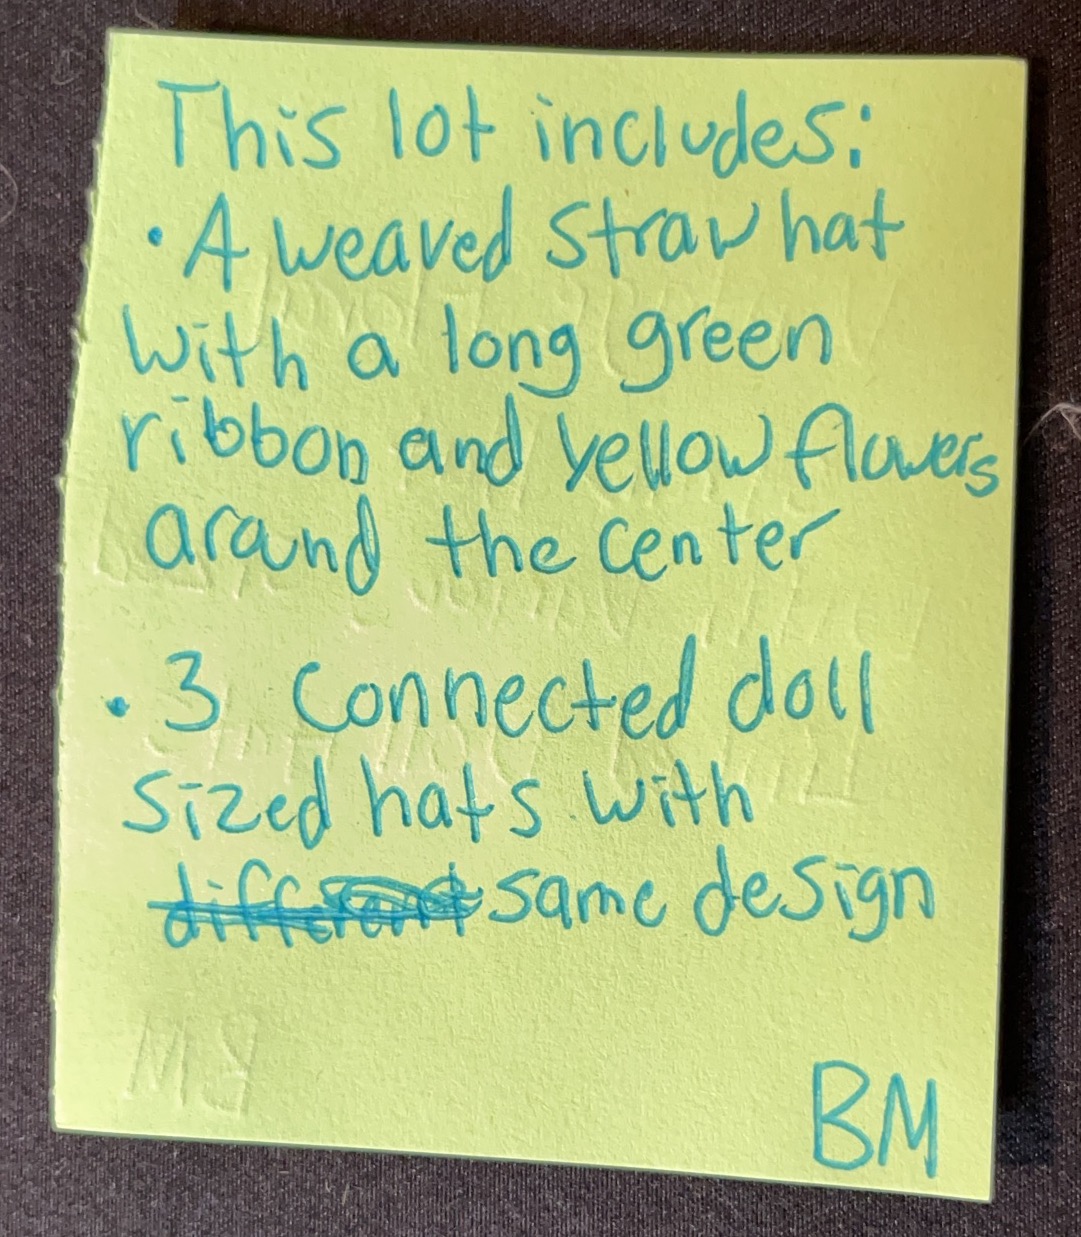 This lot includes:
• A weaved straw hat
with a long green
ribbon and yellow flowers
around the center
• 3 connected doll
sized hats with
different same design
BM